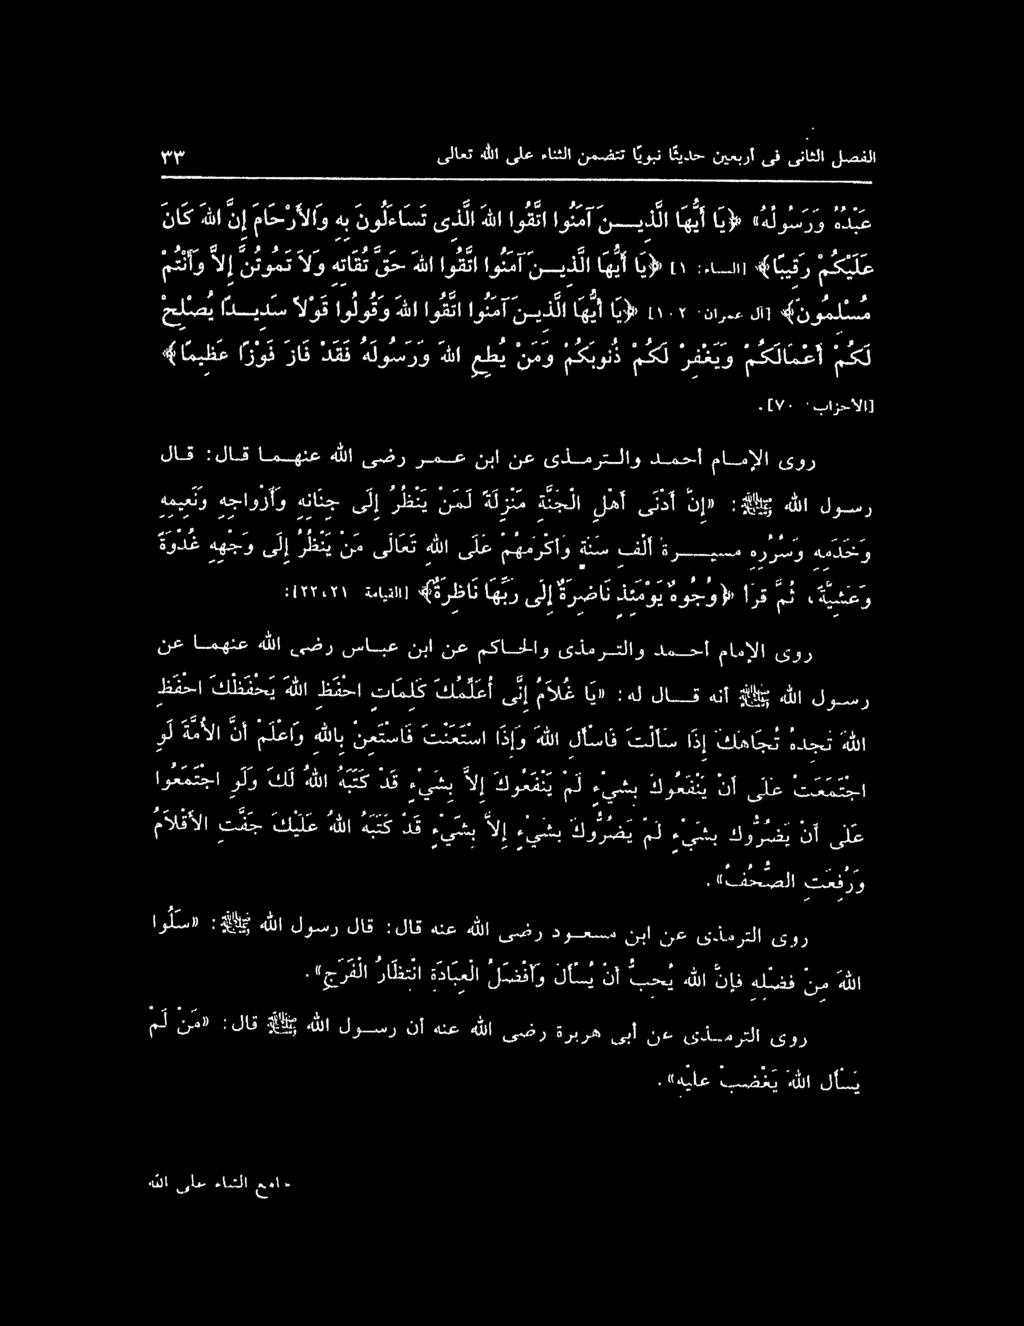 الفصل الثانى فى أربعين حديثًا نبويًا تتضمن الثناء على الله تعالى ٣٣
عَبْدُهُ وَرَسُولُهُ» ﴿يَا أَيُّهَا الَّذِيـــنَ آمَنُوا اتَّقُوا اللهَ الَّذِى تَسَاءَلُونَ بِهِ وَالأَرْحَامَ إِنَّ اللهَ كَانَ
عَلَيْكُمْ رَقِيبًا﴾ [النساء: ١] ﴿يَا أَيُّهَا الَّذِيـــنَ آمَنُوا اتَّقُوا اللهَ حَقَّ تُقَاتِهِ وَلاَ تَمُوتُنَّ إِلاَّ وَأَنْتُمْ
مُسْلِمُونَ﴾ [آل عمران ١٠٢] ﴿يَا أَيُّهَا الَّذِيـنَ آمَنُوا اتَّقُوا اللهَ وَقُولُوا قَوْلاً سَدِيـدًا يُصْلِحْ
لَكُمْ أَعْمَالَكُمْ وَيَغْفِرْ لَكُمْ ذُنُوبَكُمْ وَمَنْ يُطِعِ اللهَ وَرَسُولَهُ فَقَدْ فَازَ فَوْزًا عَظِيمًا﴾
[الأحزاب ٧٠].
روى الإمـام أحمـد والـترمـذى عن ابن عـمـر رضى الله عنهـمـا قـال: قـال
رسـول الله ﷺ: «إِنَّ أَدْنَى أَهْلِ الْجَنَّةِ مَنْزِلَةً لَمَنْ يَنْظُرُ إِلَى جِنَانِهِ وَأَزْوَاجِهِ وَنَعِيمِهِ
وَخَدَمِهِ وَسُرُرِهِ مسيـــرة أَلْفِ سَنَةٍ وَأَكْرَمَهُمْ عَلَى اللهِ تَعَالَى مَنْ يَنْظُرُ إِلَى وَجْهِهِ غُدْوَةً
وَعَشِيَّةً، ثُمَّ قرأ ﴿وُجُوهٌ يَوْمَئِذٍ نَاضِرَةٌ إِلَى رَبِّهَا نَاظِرَةٌ﴾ [القيامة ٢١، ٢٢]:
روى الإمام أحـمـد والتـرمـذى والحـاكم عن ابن عبـاس رضى الله عنهمـا عن
رسـول الله ﷺ أنه قـــال له: «يَا غُلاَمُ إِنِّى أُعَلِّمُكَ كَلِمَاتٍ احْفَظِ اللهَ يَحْفَظْكَ احْفَظِ
اللهَ تَجِدْهُ تُجَاهَكَ إِذَا سَأَلْتَ فَاسْأَلِ اللهَ وَإِذَا اسْتَعَنْتَ فَاسْتَعِنْ بِاللهِ وَاعْلَمْ أَنَّ الأُمَّةَ لَوِ
اجْتَمَعَتْ عَلَى أَنْ يَنْفَعُوكَ بِشَيْءٍ لَمْ يَنْفَعُوكَ إِلاَّ بِشَيْءٍ قَدْ كَتَبَهُ اللهُ لَكَ وَلَوِ اجْتَمَعُوا
عَلَى أَنْ يَضُرُّوكَ بِشَيْءٍ لَمْ يَضُرُّوكَ بِشَيْءٍ إِلاَّ بِشَيْءٍ قَدْ كَتَبَهُ اللهُ عَلَيْكَ جَفَّتِ الأَقْلاَمُ
وَرُفِعَتِ الصُّحُفُ».
روى الترمذى عن ابن مسعود رضى الله عنه قال: قال رسول الله ﷺ: «سَلُوا
اللهَ مِنْ فَضْلِهِ فَإِنَّ اللهَ يُحِبُّ أَنْ يُسْأَلَ وَأَفْضَلُ الْعِبَادَةِ انْتِظَارُ الْفَرَجِ».
روى الترمـذى عن أبى هريرة رضى الله عنه أن رسـول الله ﷺ قال: «مَنْ لَمْ
يَسْأَلِ اللهَ يَغْضَبْ عليْهِ».
امع الثناء على الله